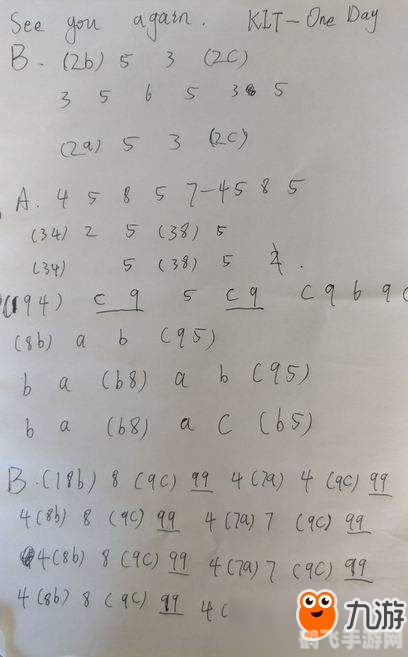 See you again. KIT-One Day
B. (2b) 5 3 (2C)
3 5 6 5 3 5
(2a) 5 3 (2C)
A. 4 5 8 5 7-45 8 5
(34) 2 5 (38) 5
(34) 5 (38) 5
(194) c 9 5 c 9 c 9 b 9 c
(8b) a b (95)
b a (b8) a b (95)
b a (b8) a C (b5)
B. (18b) 8 (9C) 99 4 (7a) 4 (9C) 99
4(8b) 8 (9C) 99 4(7a) 7 (9C) 99
4(8b) 8 (9C) 99 4(7a) 7 (9C) 99
4(8b) 8 (9C) 99 4 (
九游
鹞飞手游网